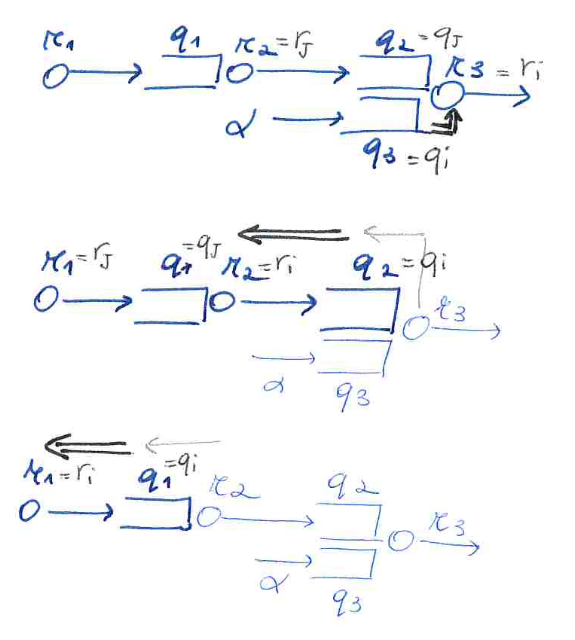 r1 q1 r2 = rJ q2 = qJ r3 = ri
α q3 = qi
r1 = rJ q1 = qJ r2 = ri q2 = qi r3
α q3
r1 = ri q1 = qi r2 q2 r3
α q3